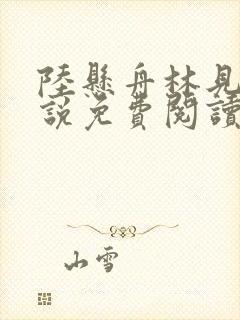 陸懸舟林見
說免費閱讀
山雪